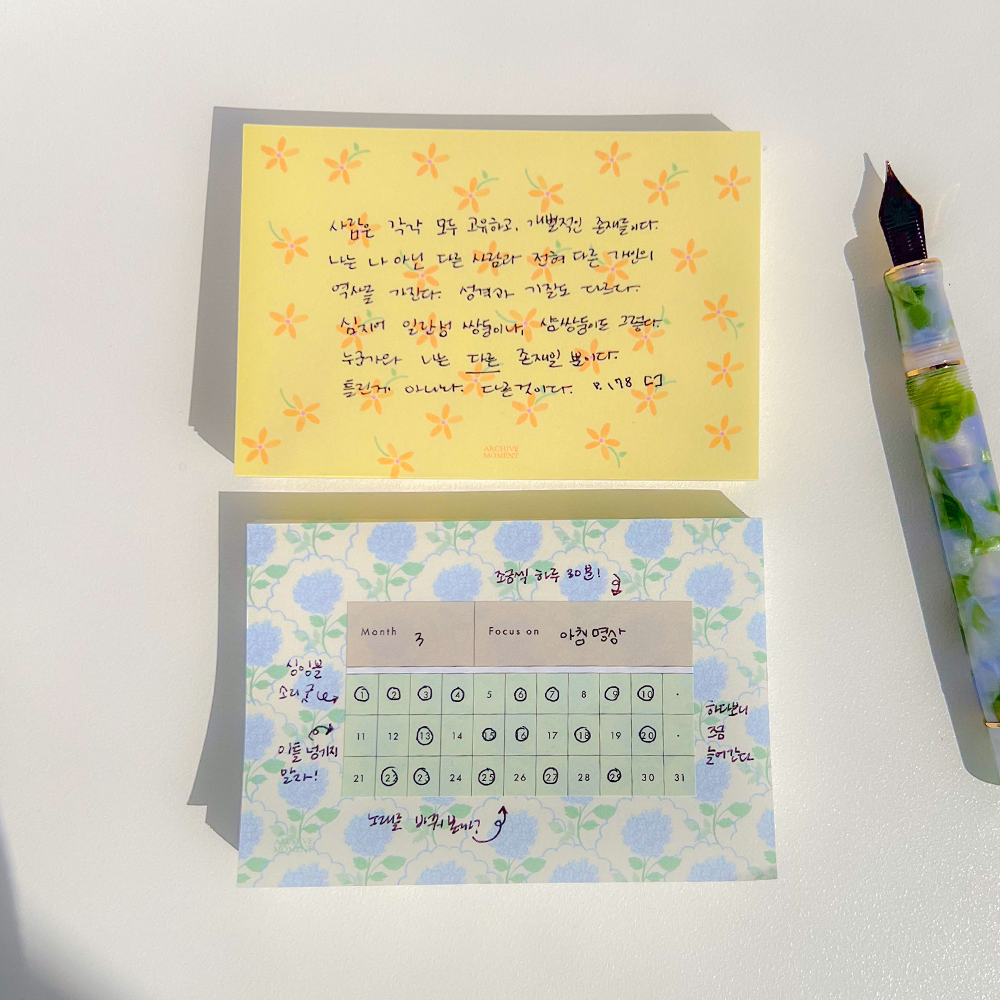 사람은 각각 모두 고유하고, 개별적인 존재들이다.
나는 나 아닌 다른 사람과 전혀 다른 개인의
역사를 가진다. 성격과 기질도 다르다.
심지어 일란성 쌍둥이나, 샴쌍둥이도 그렇다.
누군가와 나는 다른 존재일 뿐이다.
틀린게 아니라. 다른것이다. P.178
ARCHIVE
MOMENT
조금씩 하루 30분!
Month 3 Focus on 아침 명상
싱잉볼
소리 굿
1 2 3 4 5 6 7 8 9 10 ·
하다보니
조금
늘어간다
11 12 13 14 15 16 17 18 19 20 ·
이틀 넘기지
말자!
21 22 23 24 25 26 27 28 29 30 31
노래를 바꿔볼까?